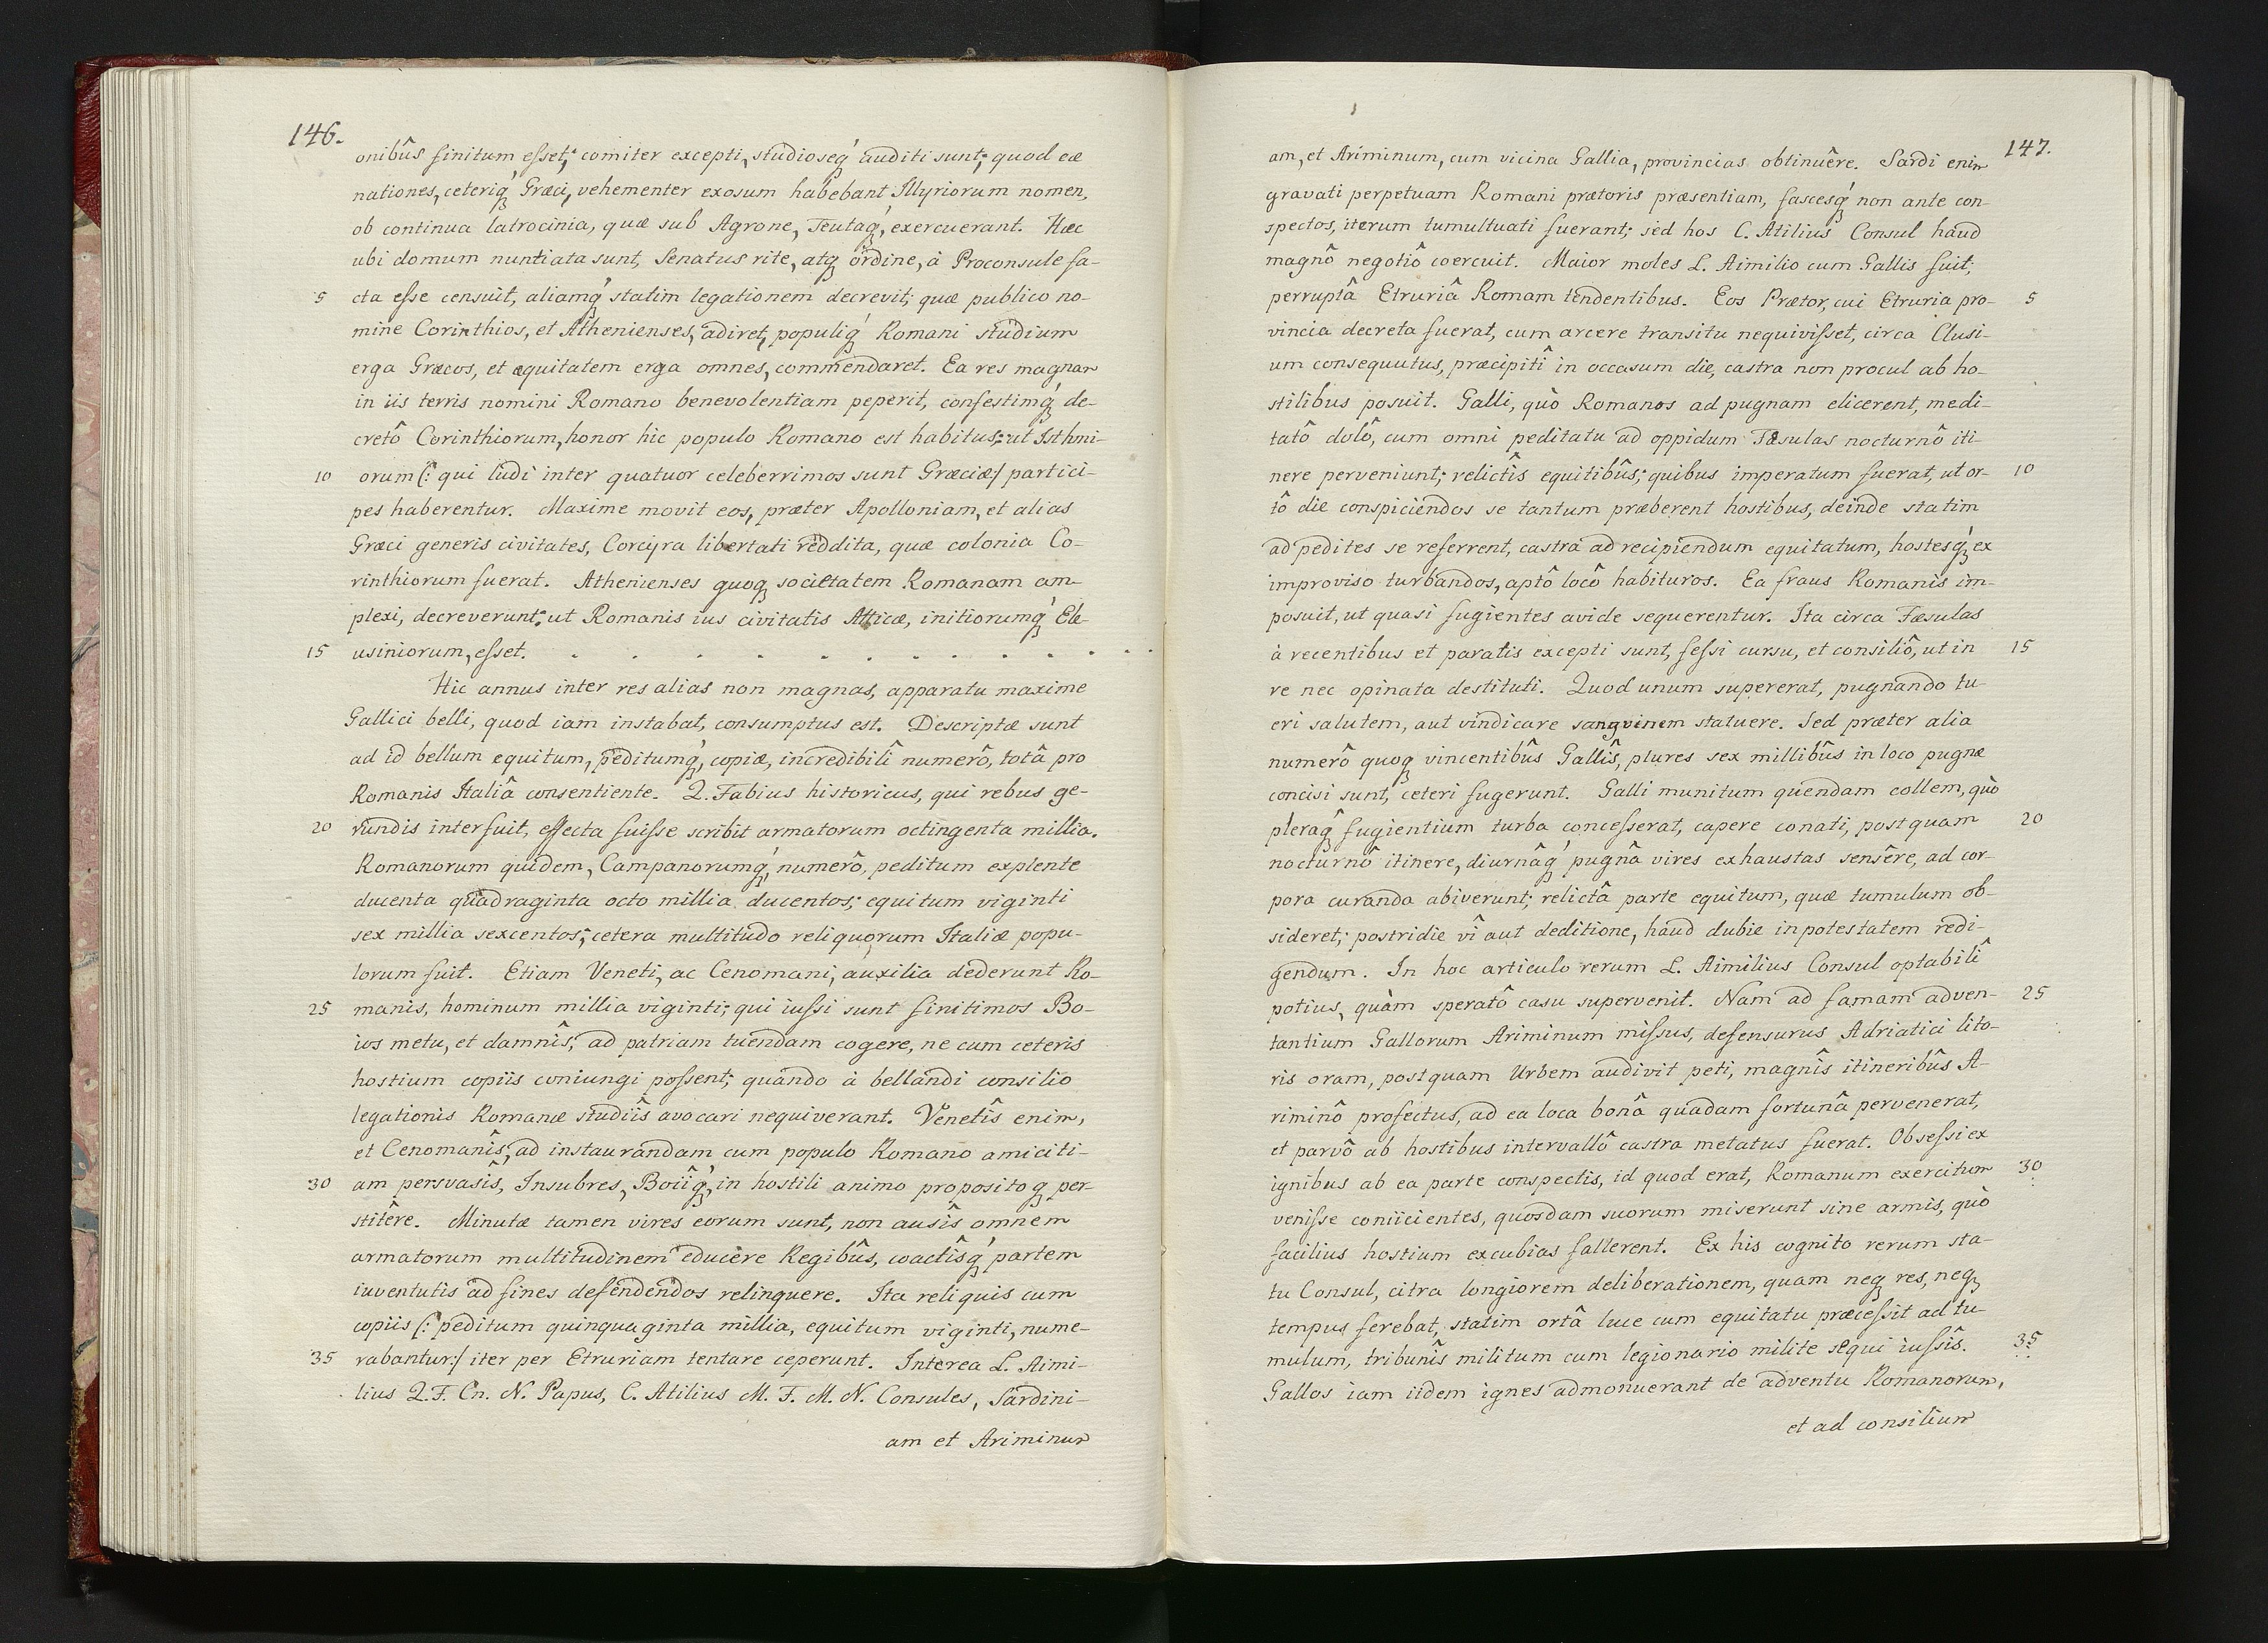 146.
onibûs finitum esset; comiter excepti, studioseq́ꝫ auditi sunt; quod eæ
nationes, ceteriq́ꝫ Græci, vehementer exosum habebant Illyriorum nomen,
ob continua latrocinia, quæ sub Agrone, Teutaq́ꝫ, exercuerant. Hæc
ubi domum nuntiata sunt, Senatus rite, atqꝫ ordine, à Proconsule fa-
5 cta esse censuit, aliamq́ꝫ statim legationem decrevit; quæ publico no-
mine Corinthios, et Athenienses, adiret, populiq́ꝫ Romani studium
erga Græcos, et æquitatem erga omnes, commendaret. Ea res magnam
in iis terris nomini Romano benevolentiam peperit, confestimq́ꝫ de-
cretô Corinthiorum, honor hic populo Romano est habitus: ut Isthmi-
10 orum (: qui ludi inter quatuor celeberrimos sunt Græciæ:) partici-
pes haberentur. Maxime movit eos, præter Apolloniam, et alias
Græci generis civitates, Corcyra libertati reddita, quæ colonia Co-
rinthiorum fuerat. Athenienses quoqꝫ societatem Romanam am-
plexi, decreverunt: ut Romanis ius civitatis Atticæ, initiorumq́ꝫ Ele-
15 usiniorum, esset. . . . . . . . . . . . . .
Hic annus inter res alias non magnas, apparatu maxime
Gallici belli, quod iam instabat, consumptus est. Descriptæ sunt
ad id bellum equitum, peditumq́ꝫ, copiæ, incredibilî numerô, totâ pro
Romanis Italiâ consentiente. Q. Fabius historicus, qui rebus ge-
20 rundis interfuit, effecta fuisse scribit armatorum octingenta millia.
Romanorum quidem, Campanorumq́ꝫ, numerô, peditum explente
ducenta quadraginta octo millia ducentos; equitum viginti
sex millia sexcentos; cetera multitudo reliquorum Italiæ popu-
lorum fuit. Etiam Veneti, ac Cenomani, auxilia dederunt Ro-
25 manis, hominum millia viginti; qui iussi sunt finitimos Bo-
ios metu, et damnîs, ad patriam tuendam cogere, ne cum ceteris
hostium copiis coniungi possent; quando à bellandi consilio
legationis Romanæ studiîs avocari nequiverant. Venetîs enim,
et Cenomanîs, ad instaurandam cum populo Romano amiciti-
30 am persvasîs, Insubres, Boiîq́ꝫ, in hostili animo propositoqꝫ per-
stitêre. Minutæ tamen vires eorum sunt, non ausîs omnem
armatorum multitudinem educere Regibûs, coactîsq́ꝫ partem
iuventutis ad fines defendendos relinquere. Ita reliquis cum
copiis (: peditum quinquaginta millia, equitum viginti, nume-
35 rabantur:) iter per Etruriam tentare ceperunt. Interea L. Aimi-
lius Q. F. Cn. N. Papus, C. Atilius M. F. M. N. Consules, Sardini-
am et Ariminum
147.
am, et Ariminum, cum vicina Gallia, provincias obtinuêre. Sardi enim
gravati perpetuam Romani prætoris præsentiam, fascesq́ꝫ non ante con-
spectos, iterum tumultuati fuerant; sed hos C. Atilius Consul haud
magnô negotiô coercuit. Maior moles L. Aimilio cum Gallis fuit;
perruptâ Etruriâ Romam tendentibus. Eos Prætor, cui Etruria pro- 5
vincia decreta fuerat, cum arcere transitu nequivisset, circa Clusi-
um consequutus, præcipitî in occasum die, castra non procul ab ho-
stilibus posuit. Galli, quò Romanos ad pugnam elicerent, medi-
tatô dolô, cum omni peditatu ad oppidum Fæsulas nocturnô iti-
nere perveniunt; relictîs equitibûs; quibus imperatum fuerat, ut or- 10
tô die conspiciendos se tantum præberent hostibus, deinde statim
ad pedites se referrent, castra ad recipiendum equitatum, hostesq́ꝫ ex
improviso turbandos, aptô locô habituros. Ea fraus Romanis im-
posuit, ut quasi fugientes avide sequerentur. Ita circa Fæsulas
à recentibus et paratis excepti sunt, fessi cursu, et consiliô, ut in 15
re nec opinata destituti. Quod unum supererat, pugnando tu-
eri salutem, aut vindicare sangvinem statuere. Sed præter alia
numerô quoqꝫ vincentibûs Gallîs, plures sex millibûs in loco pugnæ
concisi sunt, ceteri fugerunt. Galli munitum quendam collem, quò
pleraqꝫ fugientium turba concesserat, capere conati, postquam 20
nocturnô itinere, diurnâq́ꝫ pugnâ vires exhaustas sensêre, ad cor-
pora curanda abiverunt; relictâ parte equitum, quæ tumulum ob-
sideret; postridie vî aut deditione, haud dubie in potestatem redi-
gendum. In hoc articulo rerum L. Aimilius Consul optabilî
potius, quàm speratô casu supervenit. Nam ad famam adven- 25
tantium Gallorum Ariminum missus, defensurus Adriatici lito-
ris oram, postquam Urbem audivit peti, magnîs itineribûs A-
riminô profectus, ad ea loca bonâ quadam fortunâ pervenerat,
et parvô ab hostibus intervallô castra metatus fuerat. Obsessi ex
ignibus ab ea parte conspectis, id quod erat, Romanum exercitum 30
venisse coniicientes, quosdam suorum miserunt sine armis, quò
facilius hostium excubias fallerent. Ex his cognito rerum sta-
tu Consul, citra longiorem deliberationem, quam neqꝫ res, neqꝫ
tempus ferebat, statim ortâ luce cum equitatu præcessit ad tu-
mulum, tribunîs militum cum legionario milite sequi iussîs. 35
Gallos iam iidem ignes admonuerant de adventu Romanorum,
et ad consilium